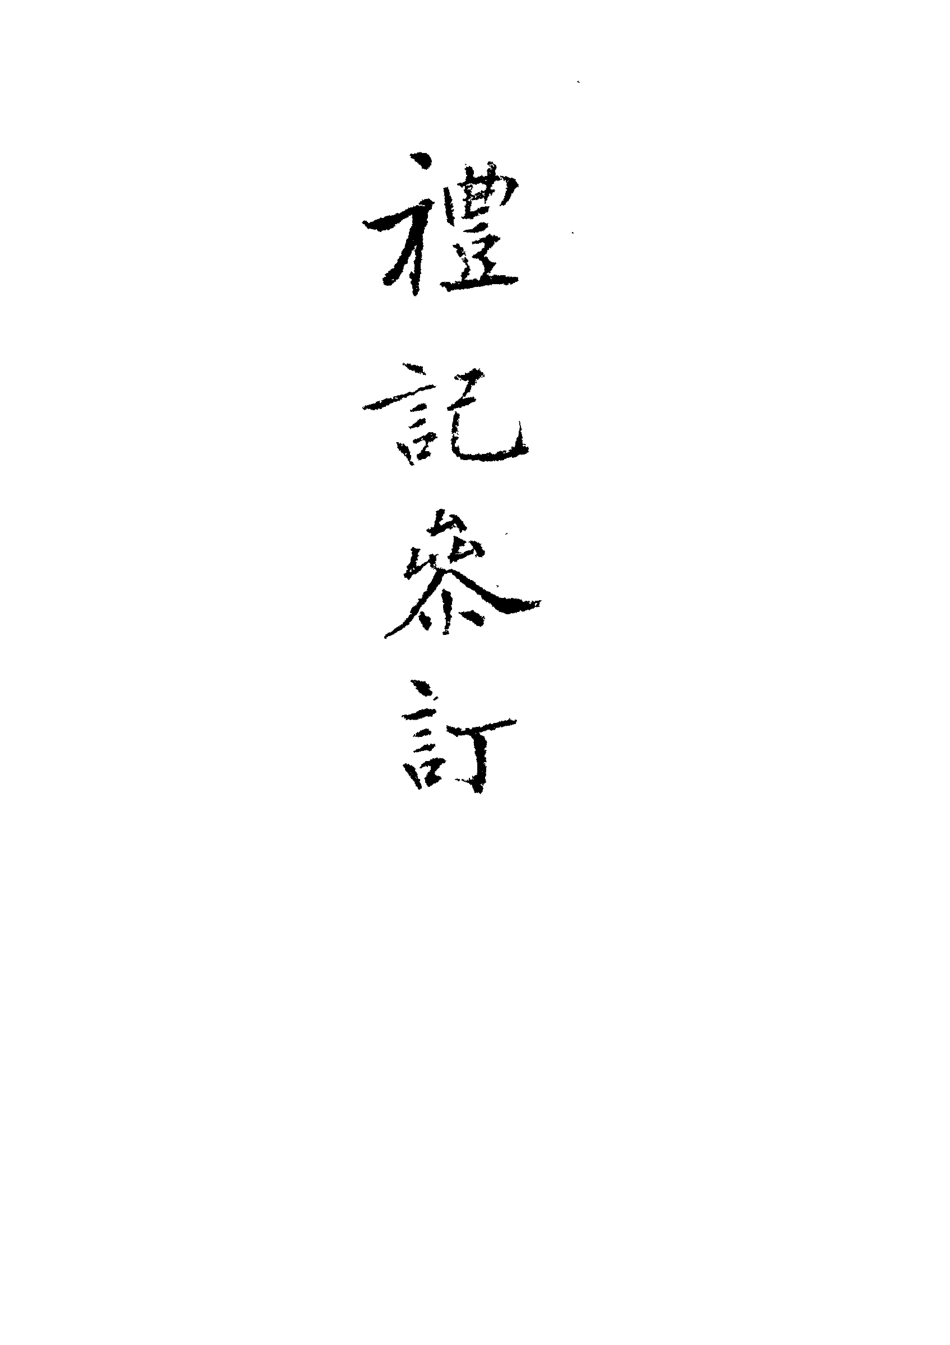 禮記參訂